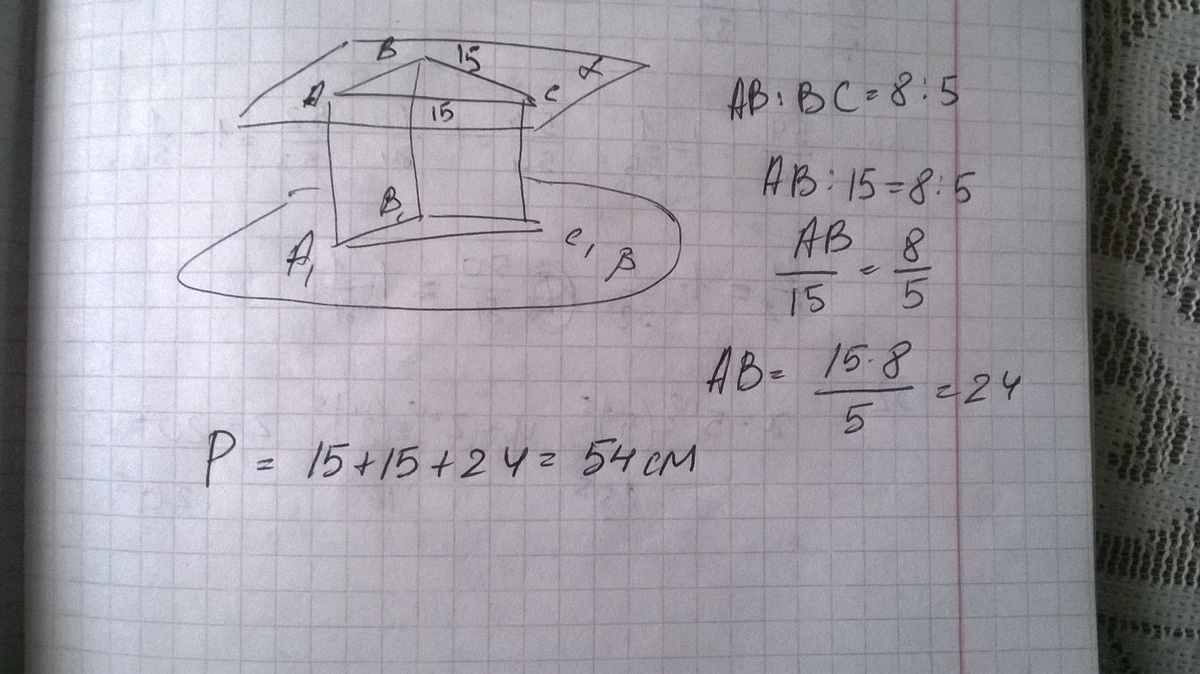 B 15 α
A 15 C
B₁
A₁ C₁ β
AB : BC = 8 : 5
AB : 15 = 8 : 5
AB/15 = 8/5
AB = 15·8/5 = 24
P = 15+15+24 = 54 см